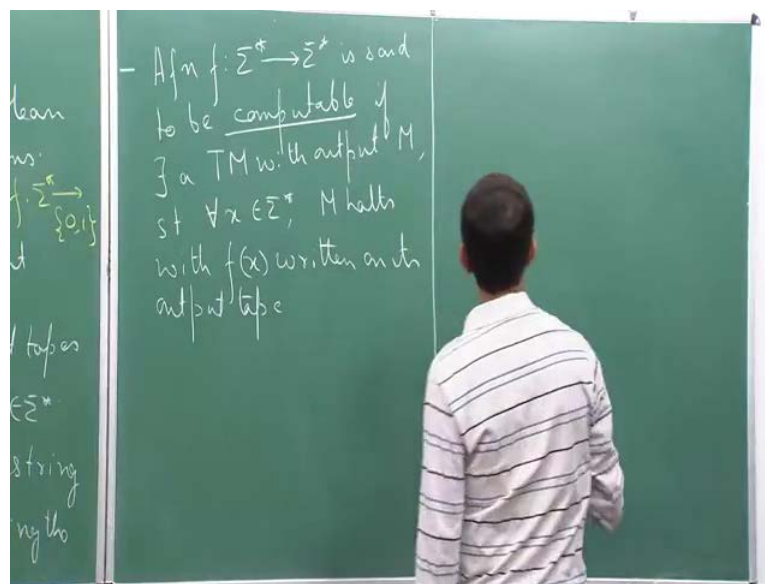 lean
ns.
f: Σ* →
{0,1}
t
tapes
∈ Σ*
string
- A fn f: Σ* → Σ* is said
to be computable if
∃ a TM with output M,
st ∀x ∈ Σ*, M halts
with f(x) written on its
output tape